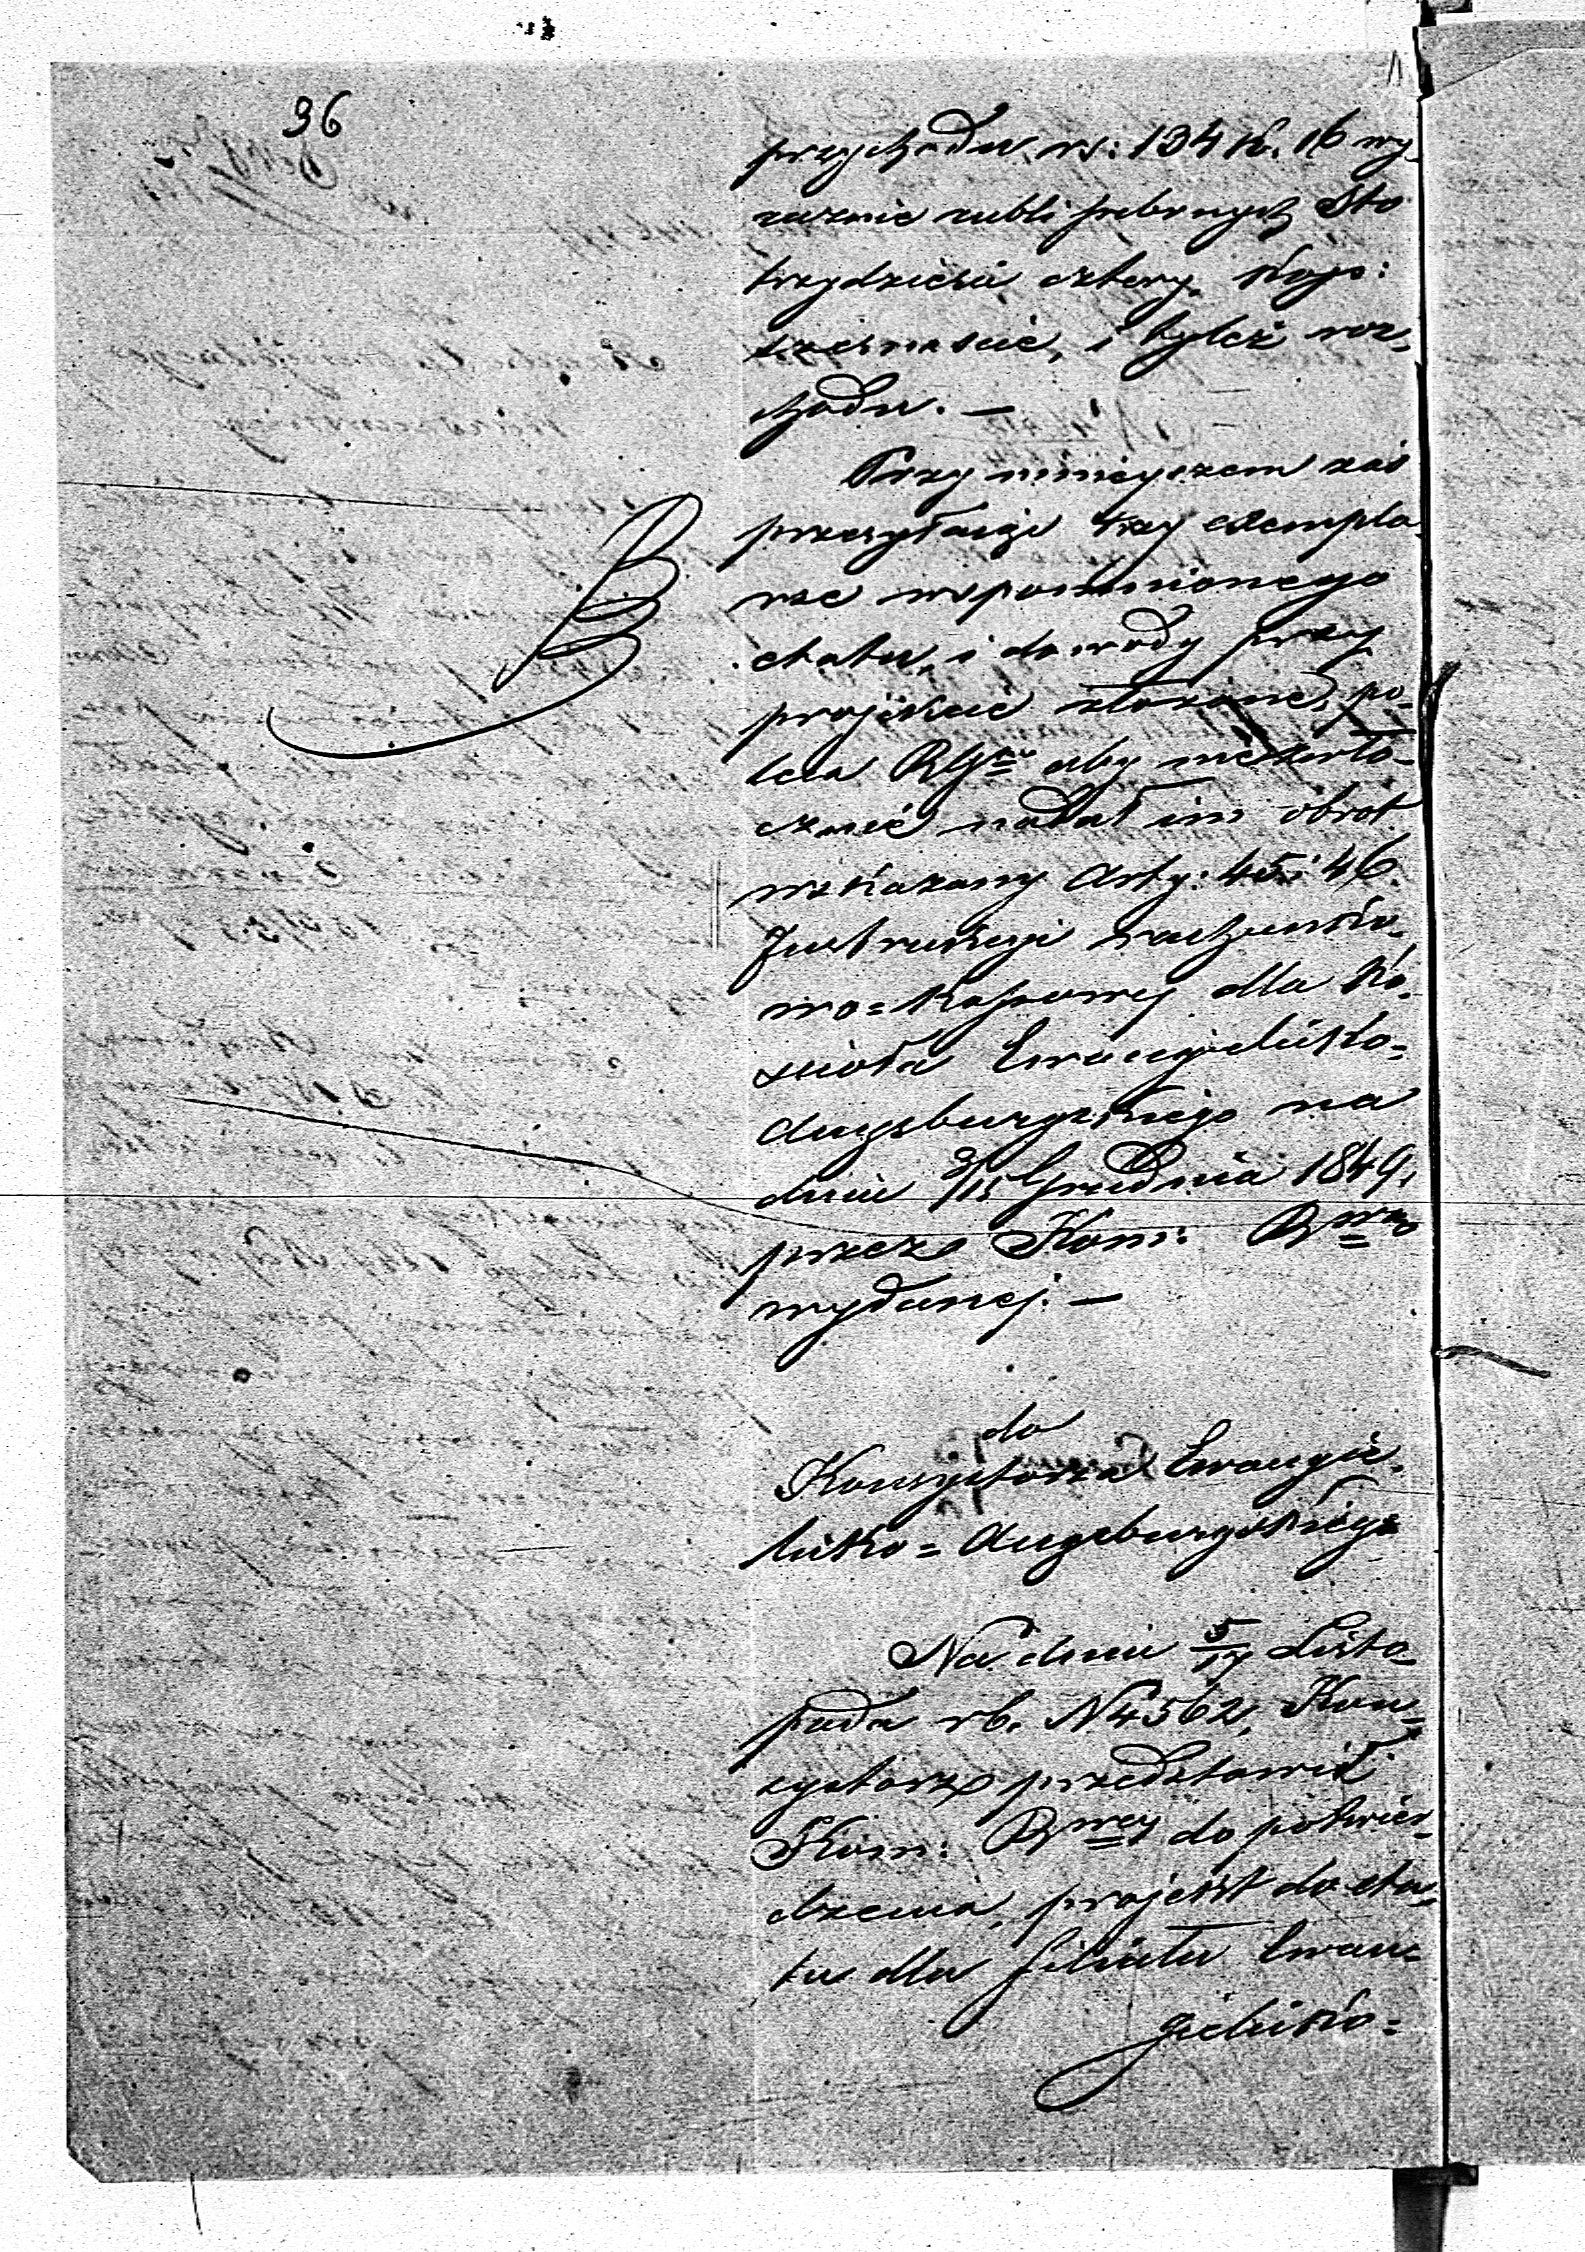 96
przychodu rs: 134 k. 16 wy
raznie rubli srebrnych Sto
trzydzieści cztery, kop:
szesnaście, i tyleż roz,
chodu. —
Przy niniejszem zaś
przesyłając trzy exempla
rze wspomnionego
etatu, i dowody przy
projekcie złożone, po-
leca RGu aby niezwło-
cznie nadał im obrót
wskazany Arty: 45 i 46.
Instrukcyi rachunko-
wo=Kassowej dla Ko-
ścioła Ewangelicko=
Augsburgskiego na
dniu 3/15 Grudnia 1849.
przez Kom: Rwą
wydanej. —
do
Konsystorza Ewangie-
licko=Augsburgskiego
Na dniu 5/17 Listo-
pada rb. N 4562, Kon=
systorz przedstawił
Kom: Rwey do potwier-
dzenia, projekt do eta-
tu dla filiału Ewan=
gelicko=